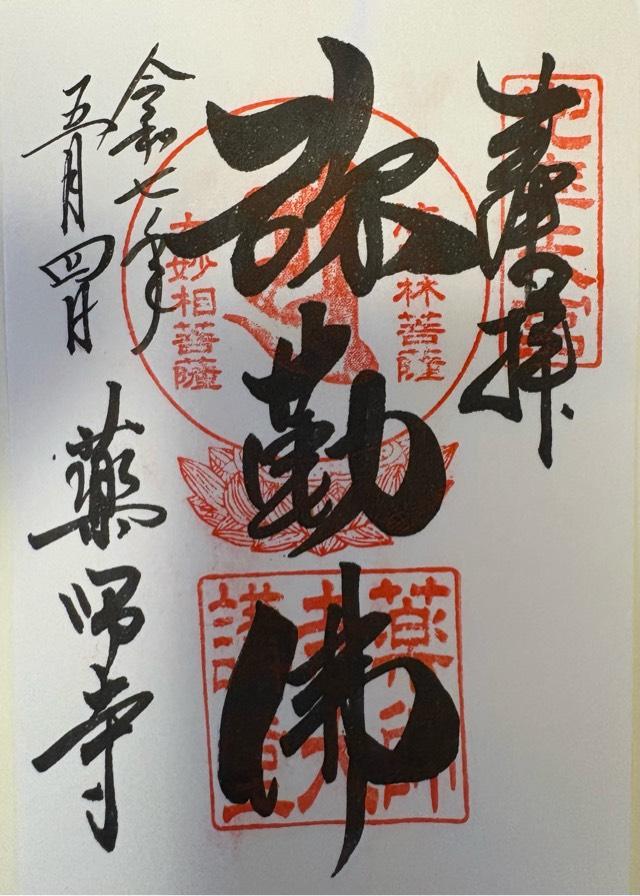 奉拝
弥勒佛
林菩薩
大妙相菩薩
薬師寺大講堂
令和七年
五月四日
薬師寺